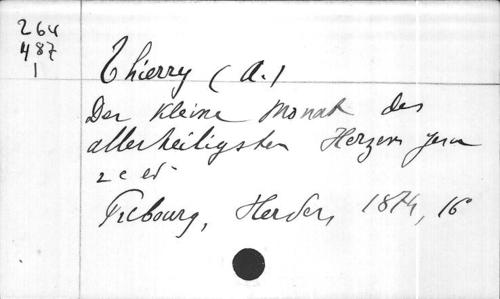 264
487
1
Thierry (A.)
Der kleine Monat des
allerheiligsten Herzens Jesu
2e ed
Fribourg, Herder, 1874, 16°